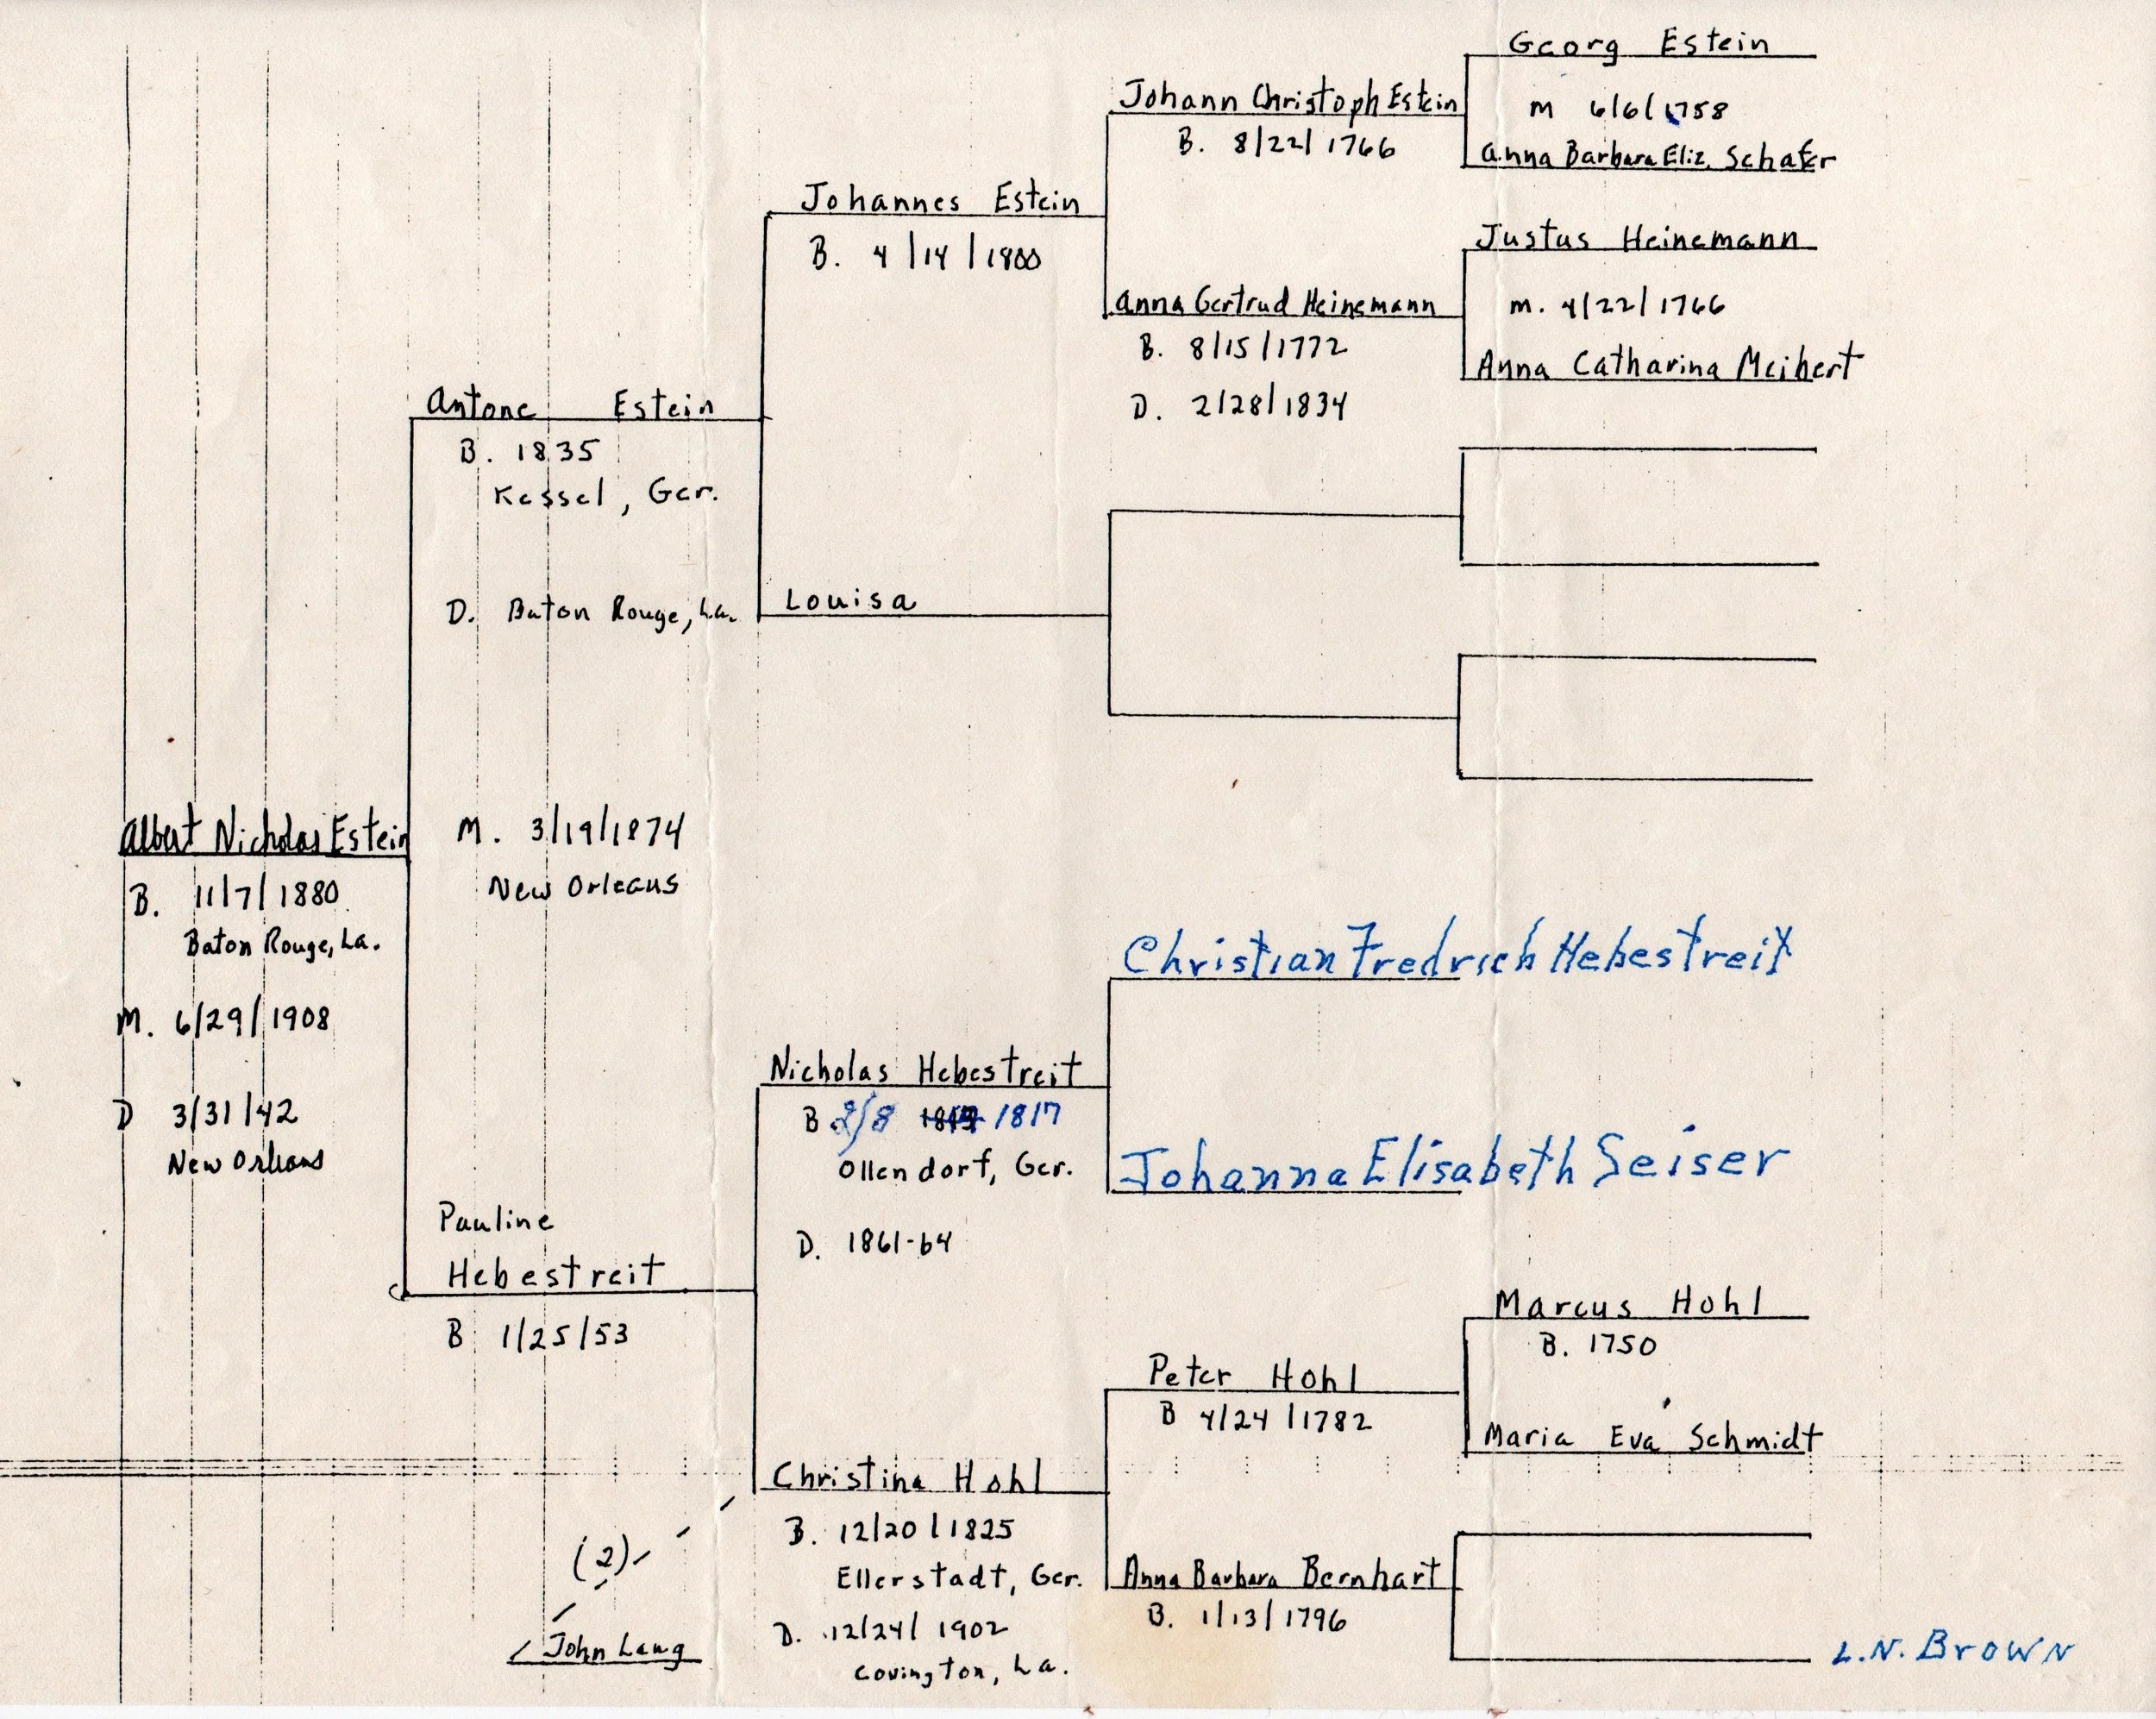 Albert Nicholas Estein
B. 11/7/1880
Baton Rouge, La.
M. 6/29/1908
D 3/31/42
New Orleans
Antone Estein
B. 1835
Kessel, Ger.
D. Baton Rouge, La.
M. 3/19/1874
New Orleans
Pauline
Hebestreit
B 1/25/53
(2)
John Lang
Johannes Estein
B. 4/14/1800
Louisa
Nicholas Hebestreit
B. 2/8 1817
Ollendorf, Ger.
D. 1861-64
Christina Hohl
B. 12/20/1825
Ellerstadt, Ger.
D. 12/24/1902
Covington, La.
Johann Christoph Estein
B. 8/22/1766
Anna Gertrud Heinemann
B. 8/15/1772
D. 2/28/1834
Christian Fredrich Hebestreit
Johanna Elisabeth Seiser
Peter Hohl
B 4/24/1782
Anna Barbara Bernhart
B. 1/13/1796
Georg Estein
M 6/6/1758
Anna Barbara Eliz. Schafer
Justus Heinemann
m. 4/22/1766
Anna Catharina Meihert
Marcus Hohl
B. 1750
Maria Eva Schmidt
L.N. BROWN